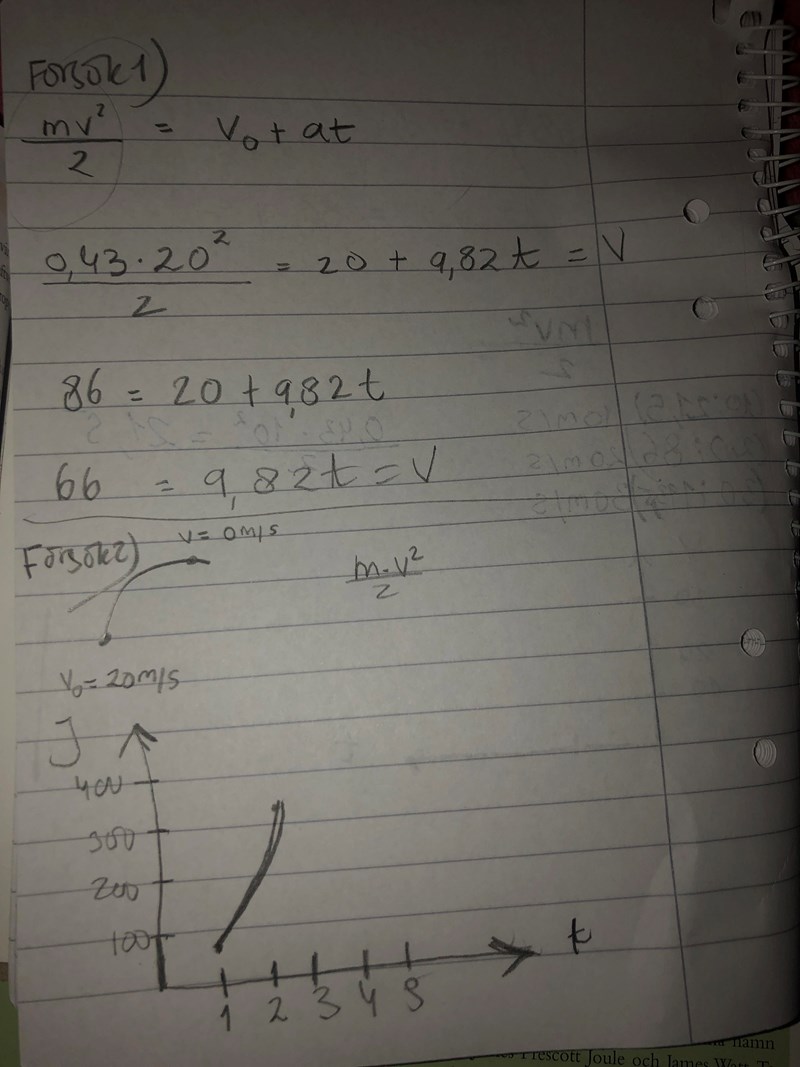 Försök 1)
mv²/2 = V₀ + at
0,43 · 20²/2 = 20 + 9,82t = V
86 = 20 + 9,82t
66 = 9,82t = V
Försök 2)
v = 0 m/s
m·v²/2
V₀ = 20 m/s
J
400
300
200
100
t
1 2 3 4 5
namn
Prescott Joule och James